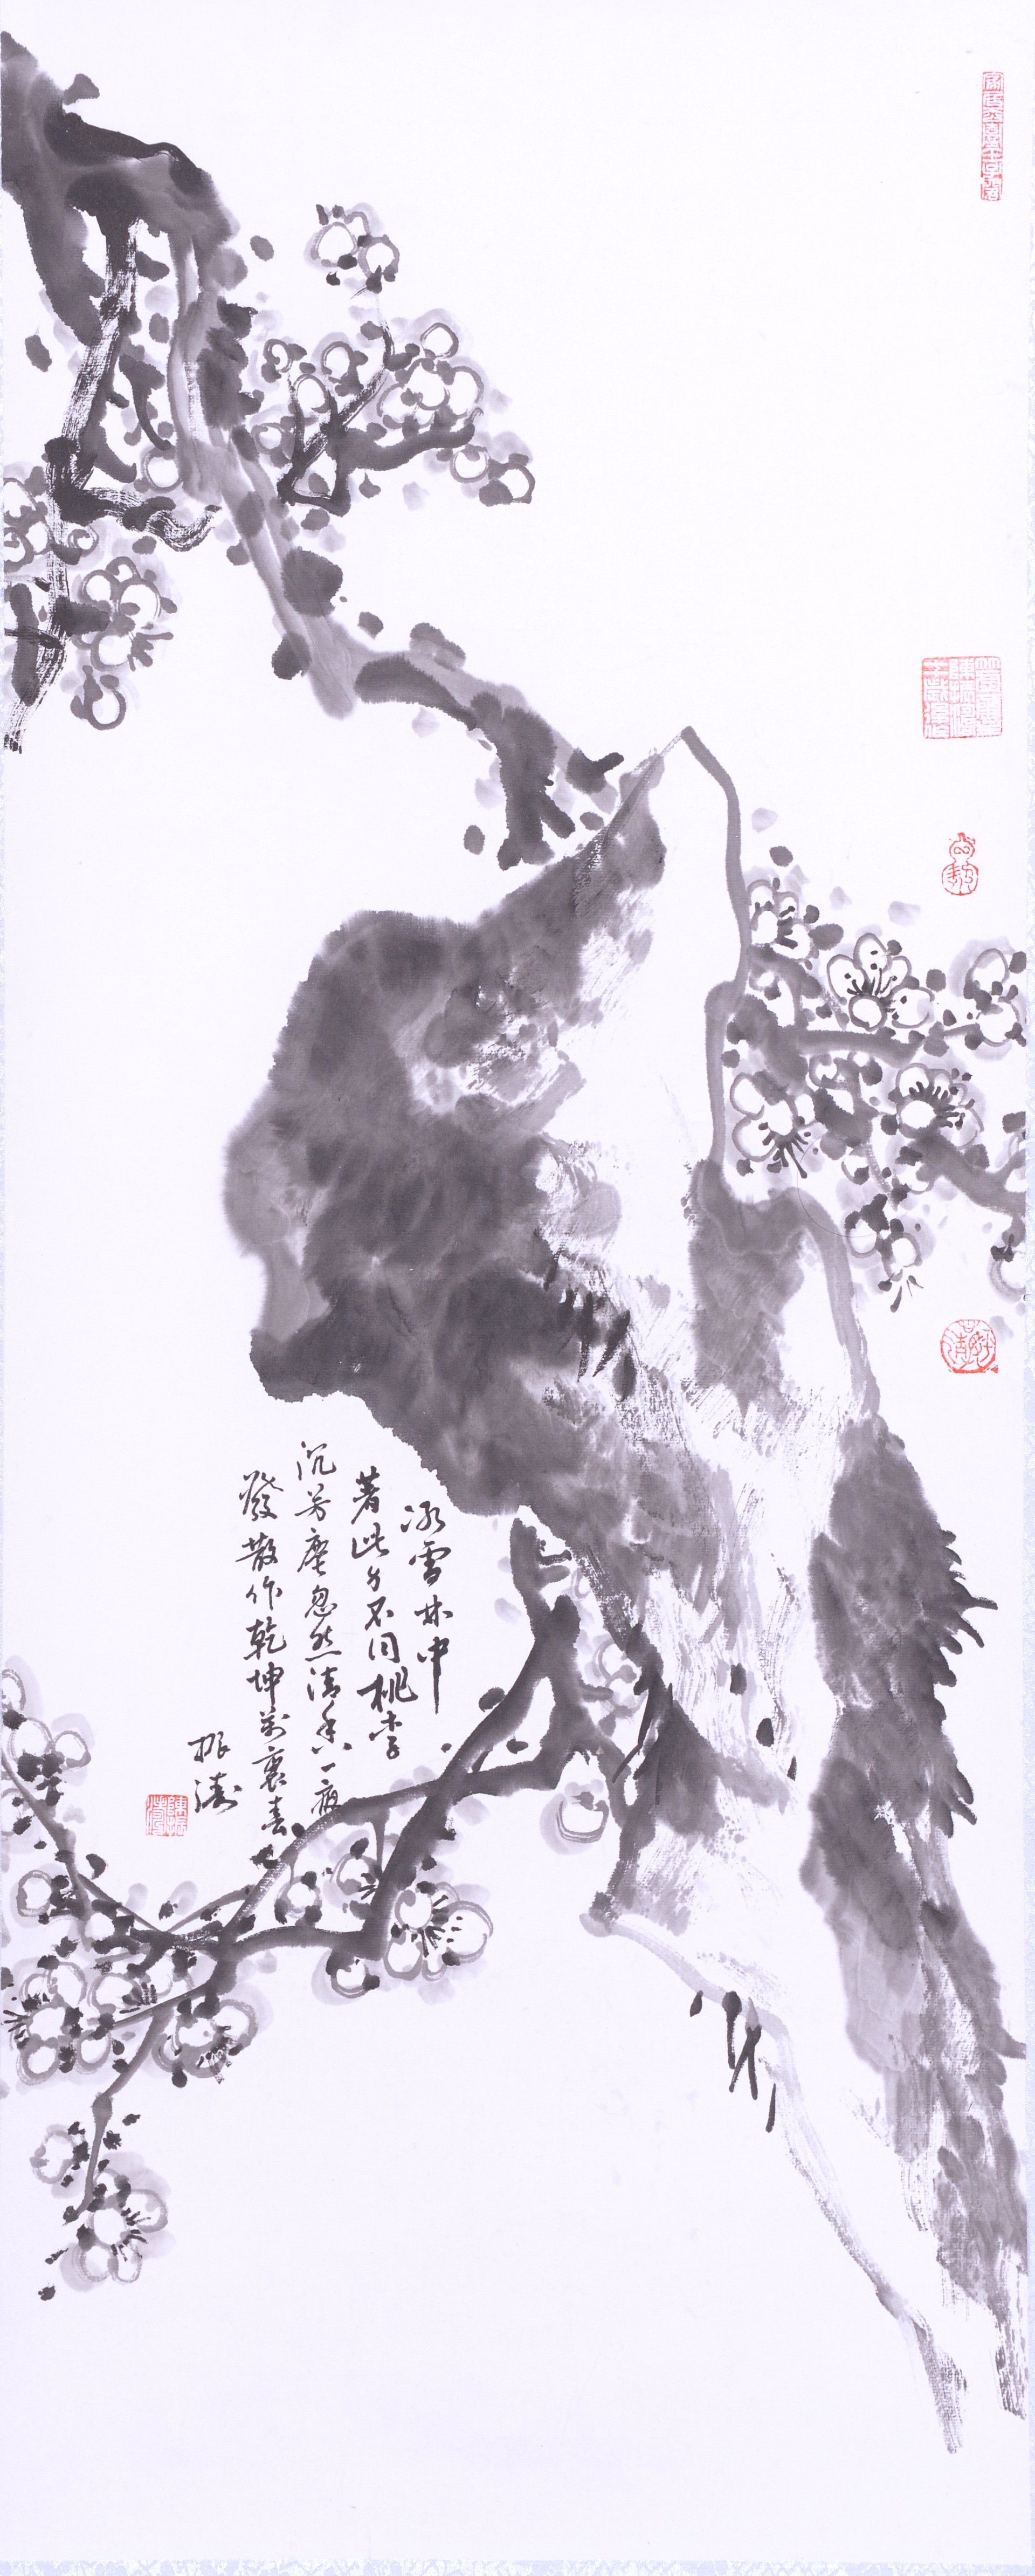 冰雪林中
著此身不同桃李
沉芳塵忽然清香一夜
發散作乾坤萬裏春
振濤
陳振濤